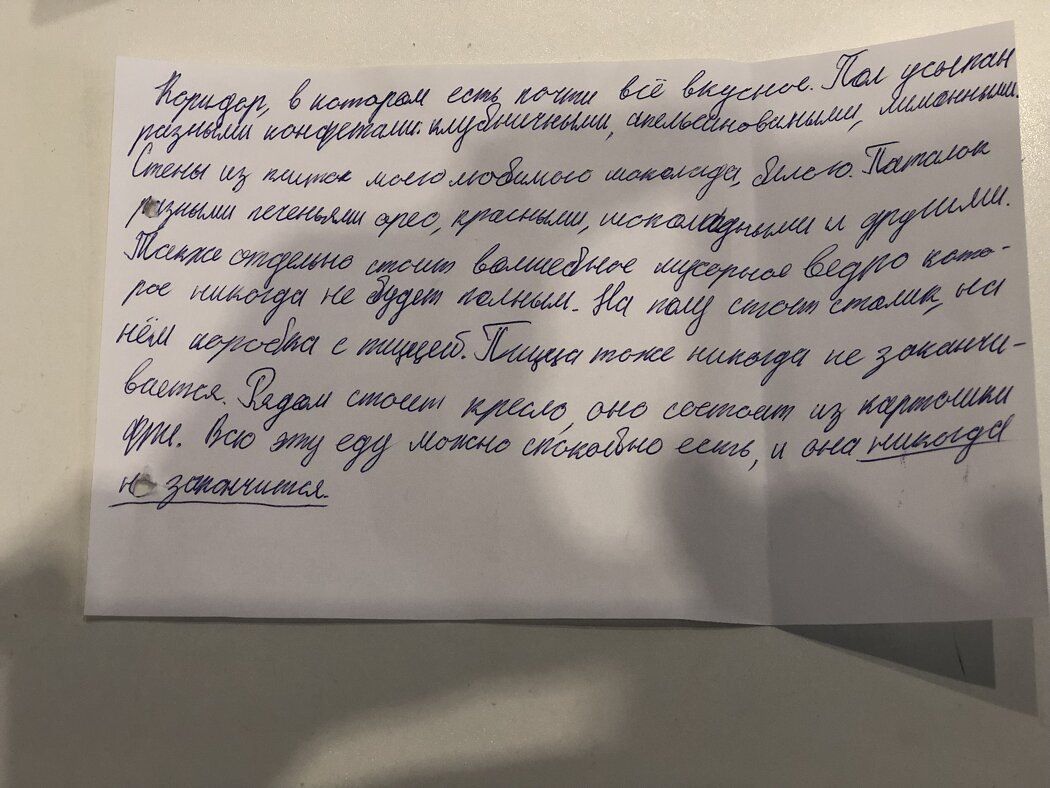 Коридор, в котором есть почти всё вкусное. Пол усыпан
разными конфетами: клубничными, апельсиноваными, лимонными.
Стены из плиток моего любимого шоколада, белого. Паталок
разными печеньями орео, красными, шоколадными и другими.
Также отдельно стоит волшебное мусорное ведро кото-
рое никогда не будет полным. На полу стоит столик, на
нём коробка с пиццей. Пицца тоже никогда не заканчи-
вается. Рядом стоит кресло, оно состоит из картошки
фри. Всю эту еду можно спокойно есть, и она никогда
не закончится.